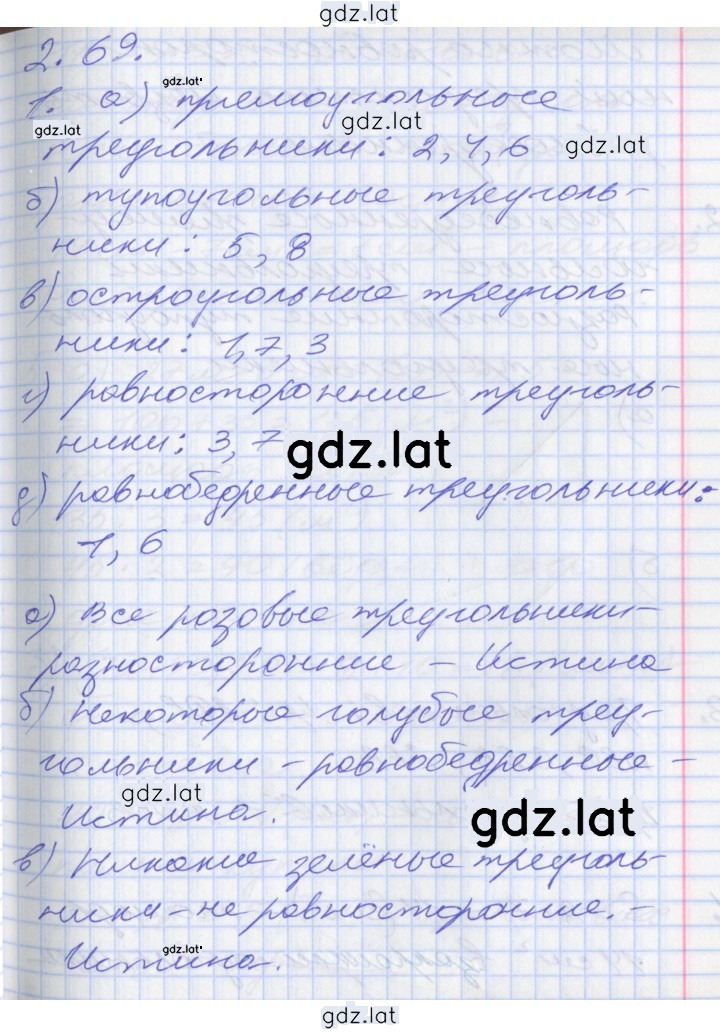 gdz.lat
2.69.
gdz.lat
1. а) прямоугольные
gdz.lat
gdz.lat
треугольники: 2, 4, 6
gdz.lat
б) тупоугольные треуголь-
ники: 5, 8
в) остроугольные треуголь-
ники: 1, 7, 3
г) равносторонние треуголь-
ники: 3, 7
gdz.lat
д) равнобедренные треугольники:
1, 6
а) Все розовые треугольники-
разносторонние - Истина
б) Некоторые голубые треу-
гольники - равнобедренные -
gdz.lat
Истина.
gdz.lat
в) Никакие зелёные треуголь-
ники - не равносторонние. -
gdz.lat
Истина.
gdz.lat